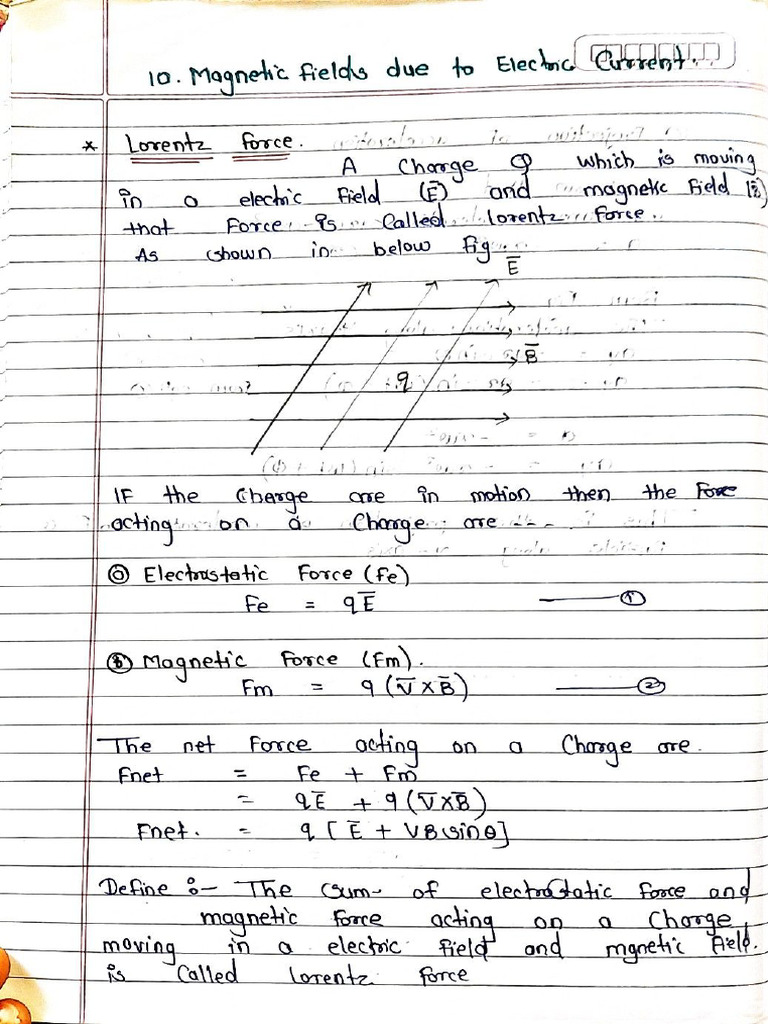 10. Magnetic fields due to Electric Current.
* Lorentz force.
A Charge Q which is moving
in a electric field (E̅) and magnetic field (B̅)
that force is Called lorentz force.
As shown in below fig.
E̅
B̅
q
IF the Charge are in motion then the Force
acting on a Charge are
ⓐ Electrostatic Force (Fe)
Fe = qE̅ ①
ⓑ Magnetic Force (Fm).
Fm = q (V̅ X B̅) ②
The net Force acting on a Charge are.
Fnet = Fe + Fm
= qE̅ + q (V̅ X B̅)
Fnet. = q [ E̅ + VB sinθ]
Define :- The sum of electrostatic force and
magnetic force acting on a Charge
moving in a electric field and mgnetic field.
is Called Lorentz force